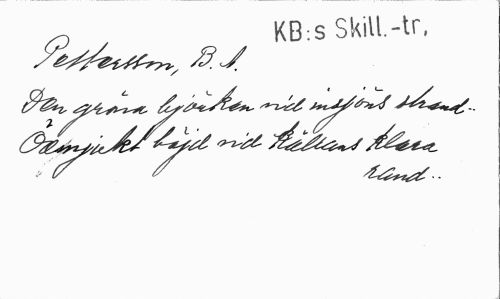 KB:s Skill.-tr,
Pettersson, B. A.
Den gröna björken vid insjöns strand..
Ödmjukt böjd vid källans klara
rand..